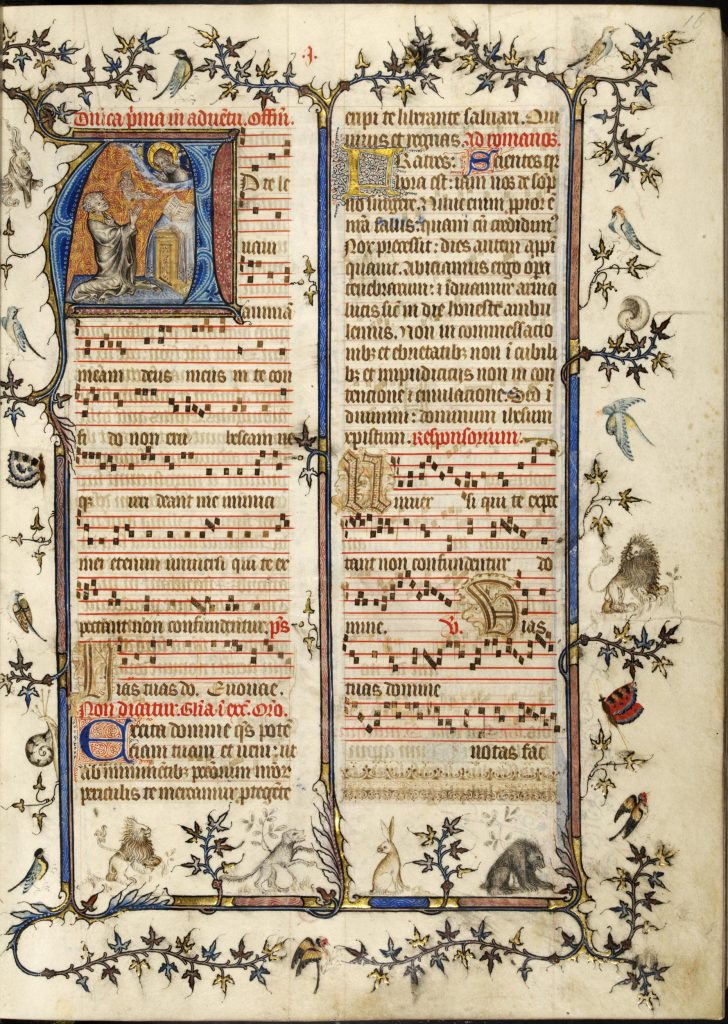 A
16
Dnica p̃ma in aduẽtu. Offm̃.
D te le
uaui
animã
meam deus meus in te con
fi do non eru bescam ne
q̃ irri deant me inimici
mei etenim uniuersi qui te ex
pectant non confundentur. p̃s
Uias tuas dñe. Euouae.
Non dicitur. Glia ĩ exc̃. Oro.
Excita domine q̃s potẽ
ciam tuam et ueni: ut
ab imminentib; peccatorum
periculis te mereamur ptegẽte
eripi te liberante saluari. Qui
uiuis et regnas. Ad romanos.
Fratres: Scientes
hora est: iam nos de sop
no surgere. Nunc enim ,pprior ẽ
salus: quam cũ credidim9
Nox precessit: dies autem appr̃
quauit. Abiciamus ergo opa
tenebrarum: ⁊ induamur arma
lucis sic̃ in die honeste ambu
lemus. Non in commessatio
nib; et ebrietatib; non ĩ cubili
b; et impudicitiis non in con
tencione ⁊ emulacione. Sed ĩ
duimini: dominum ihesum
xpistum. Responsorium.
Uniuer si qui te expec
tant non confundentur do
mine. V̷. Uias
tuas domine
notas fac